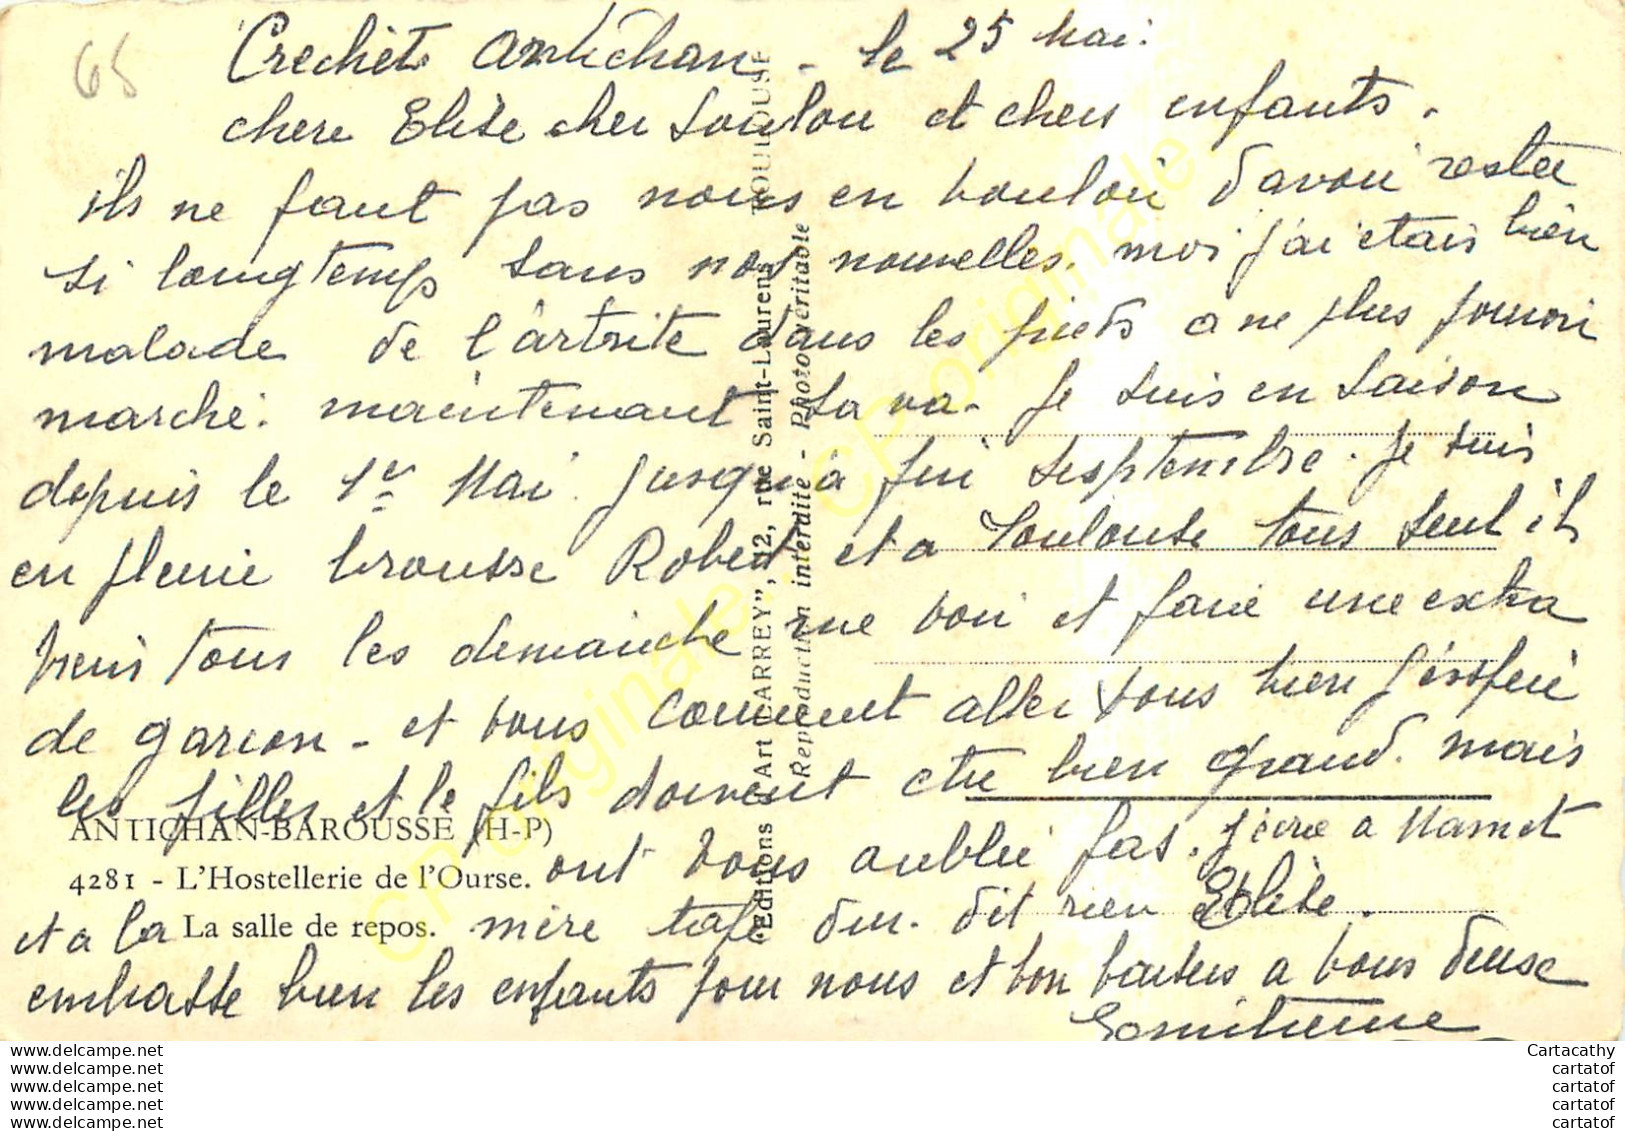 65
Crechets antichan - le 25 Mai.
chere Elise cher Loulou et chers enfants.
ils ne faut pas nous en vouloir davoir restée
si longtemps sans nos nouvelles. moi j'ai etais bien
malade de l'artrite dans les pieds a ne plus pouvoir
marché. maintenant sa va - je suis en saison
depuis le 1er Mai. jusqu'a fin sesptembre. je suis
en pleine brousse Robert et a Toulouse tous seul il
viens tous les demanche me voir et faire une extra
de garcon - et vous comment aller vous bien j'espere
les filles et le fils doivent etre bien grand. mais
ANTICHAN-BAROUSSE (H-P)
ont vous oublie pas. j'ecrie a Mamet
4281 - L'Hostellerie de l'Ourse.
et a la mère dit rien Elise.
La salle de repos.
embrasse bien les enfants pour nous et bon baisers a vous deuse
"Editions d'Art LARREY", 12, rue Saint-Laurens - TOULOUSE
Reproduction interdite - Photo véritable
CPoriginale CPoriginale
www.delcampe.net
www.delcampe.net
www.delcampe.net
www.delcampe.net
www.delcampe.net
Cartacathy
cartatof
cartatof
cartatof
cartatof